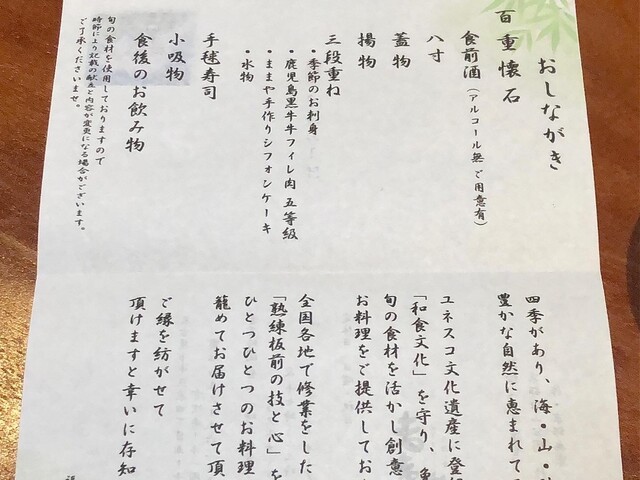 おしながき
百重懐石
食前酒（アルコール無ご用意有）
八寸
蓋物
揚物
三段重ね
・季節のお刺身
・鹿児島黒牛牛フィレ肉 五等級
・ままや手作りシフォンケーキ
・水物
手毬寿司
小吸物
食後のお飲み物
旬の食材を使用しておりますので
時節により記載の献立と内容が変更になる場合がございます。
ご了承くださいませ。
四季があり、海・山・
豊かな自然に恵まれて
ユネスコ文化遺産に登
「和食文化」を守り、
旬の食材を活かし創意
お料理をご提供してお
全国各地で修業をした
「熟練板前の技と心」を
ひとつひとつのお料理
籠めてお届けさせて頂
ご縁を紡がせて
頂けますと幸いに存知